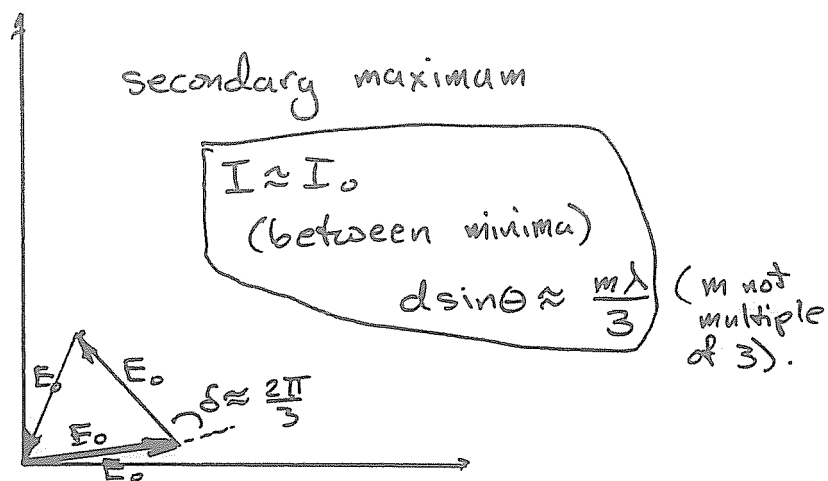 secondary maximum
I ≈ I₀
(between minima)
d sinθ ≈ mλ/3 (m not multiple of 3).
E₀
E₀
δ ≈ 2π/3
E₀
E₀